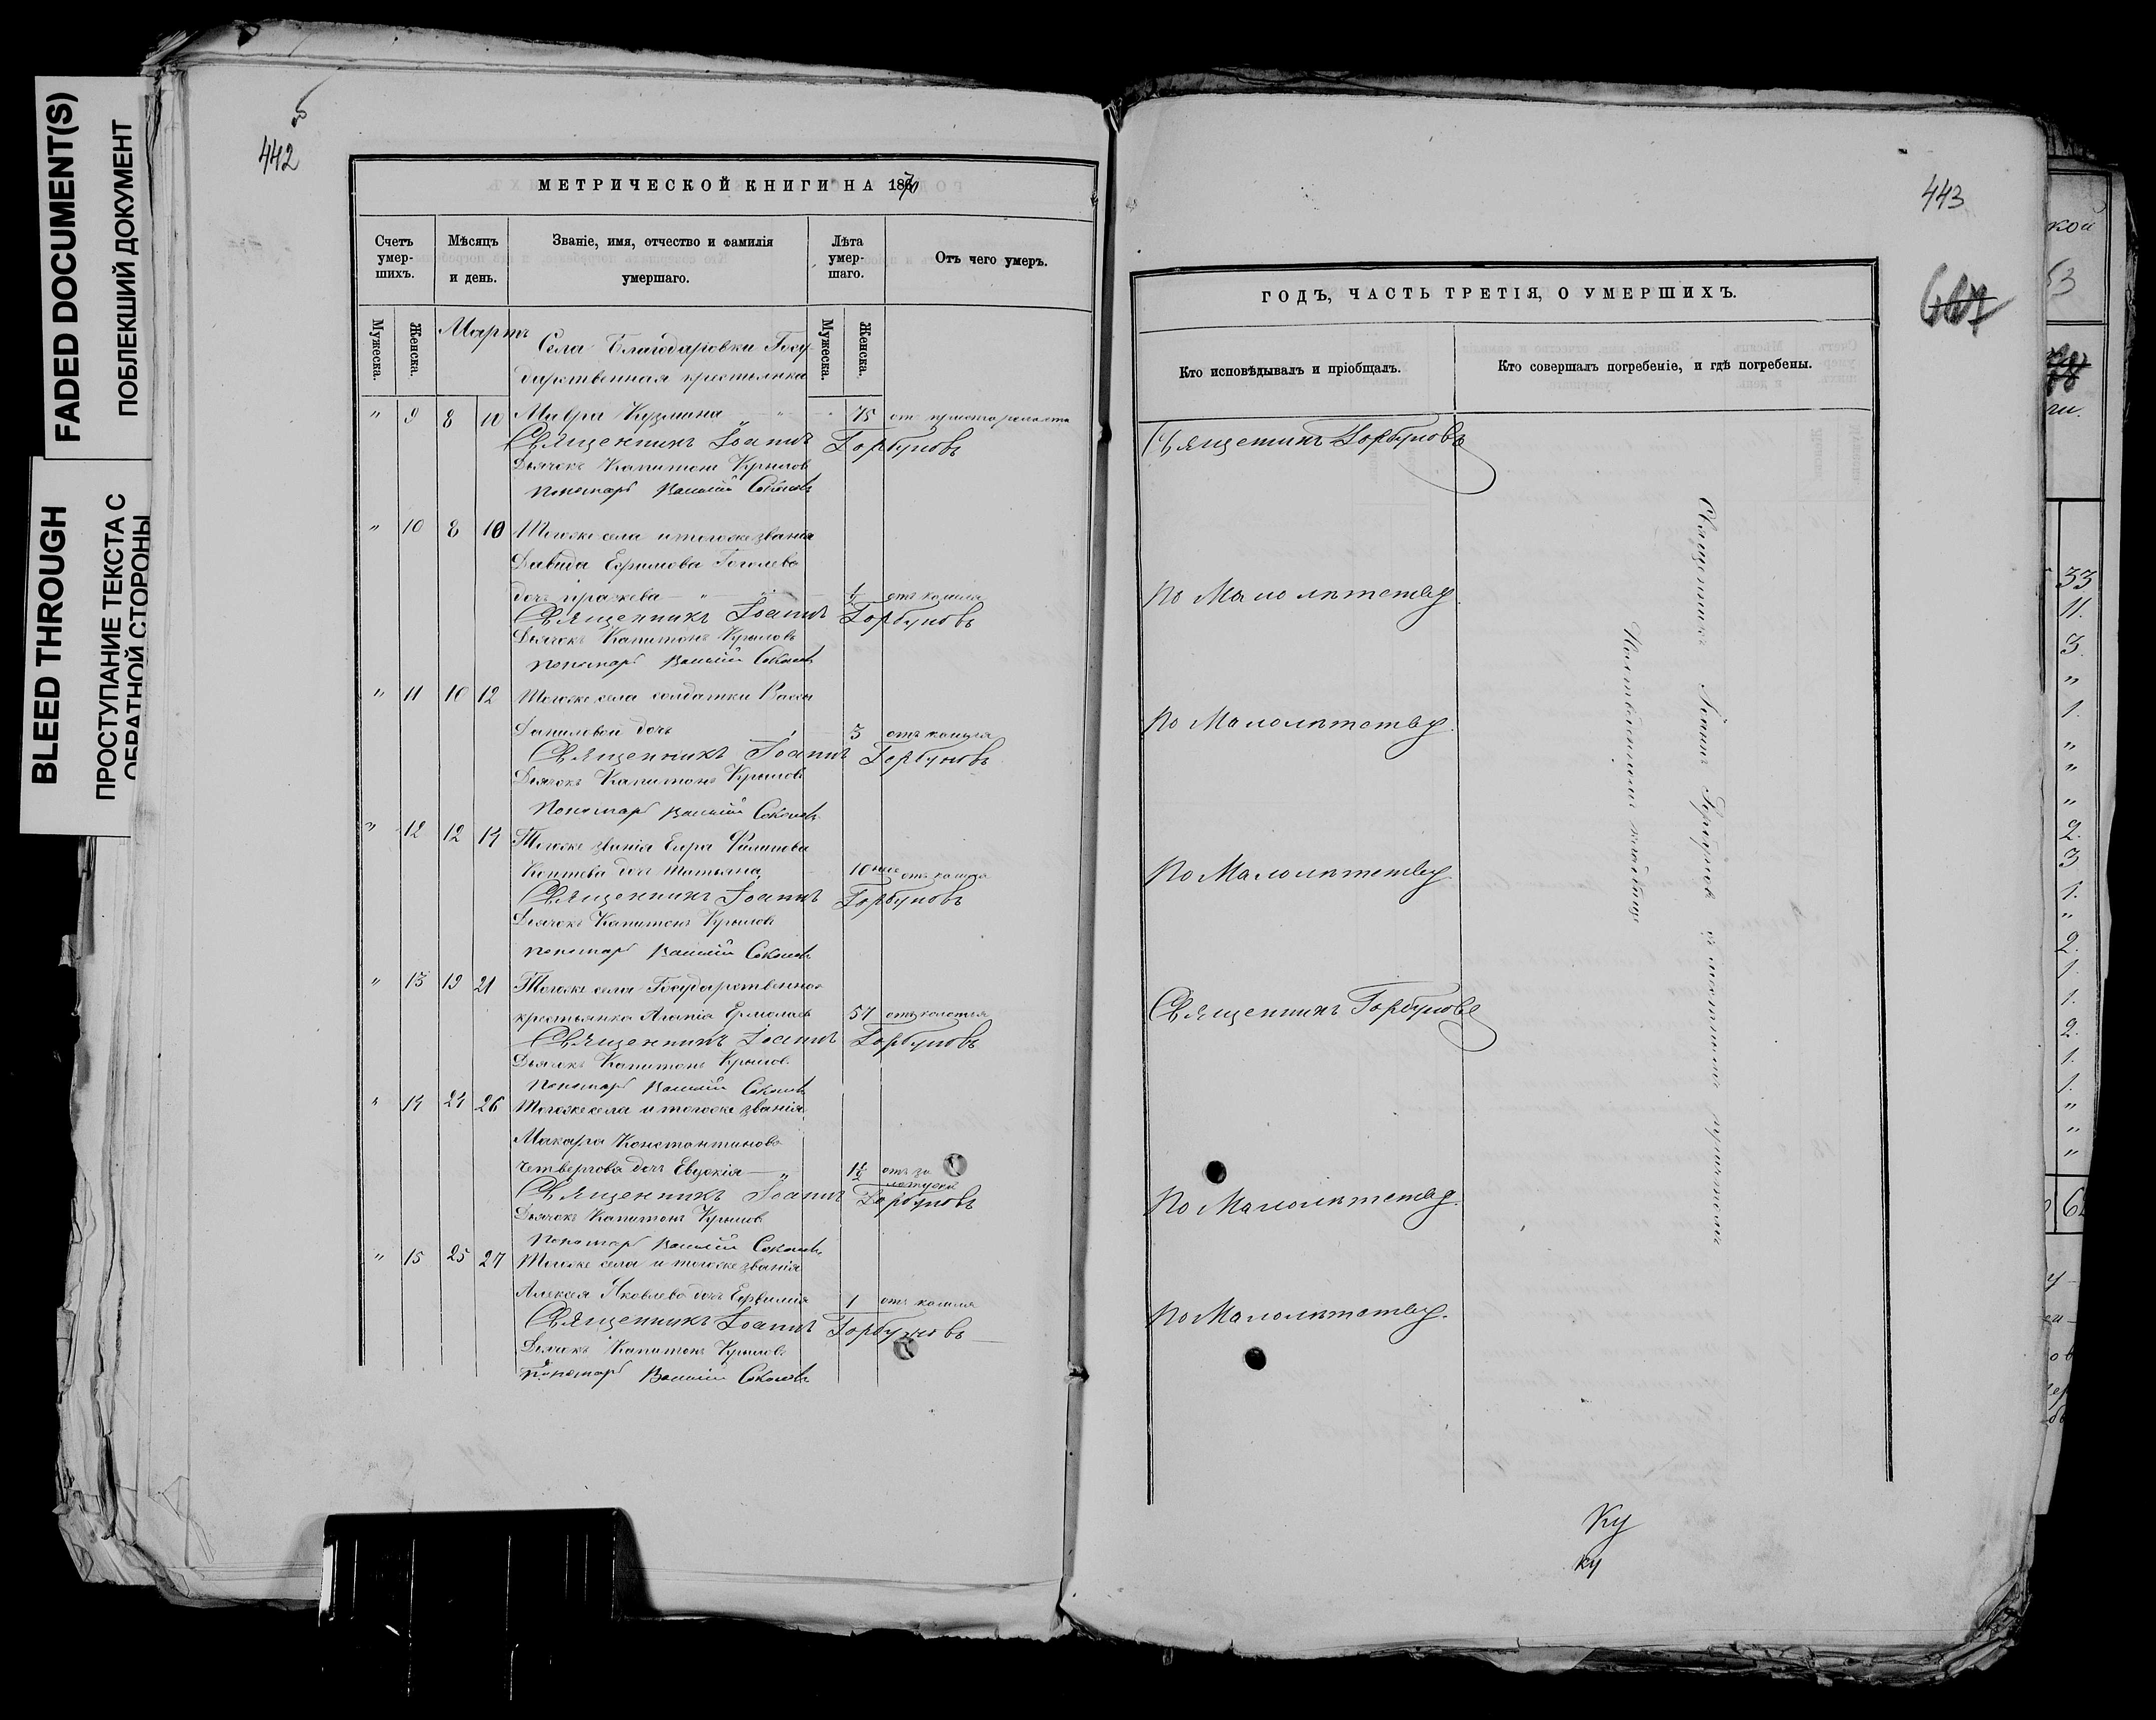 FADED DOCUMENT(S)
ПОБЛЕКШИЙ ДОКУМЕНТ
BLEED THROUGH
ПРОСТУПАНИЕ ТЕКСТА С
ОБРАТНОЙ СТОРОНЫ
442
МЕТРИЧЕСКОЙ КНИГИ НА 1870
Счетъ умер-шихъ.
Мѣсяцъ и день.
Званіе, имя, отчество и фамилія умершаго.
Лѣта умер-шаго.
Отъ чего умеръ.
Мужеска.
Женска.
Мартъ
Мужеска.
Женска.
Села Благодаровки Госу
дарственная крестьянка
" 9 8 10 Мавра Кузмина 75 отъ
Священникъ Іоаннъ Горбуновъ
Дьячокъ Капитонъ Крыловъ
Пономарь Василій Соколовъ
" 10 8 10 Тогоже села и тогоже званія
Давида Ефимова Гоголева
дочь отъ кашля
Священникъ Іоаннъ Горбуновъ
Дьячокъ Капитонъ Крыловъ
Пономарь Василій Соколовъ
" 11 10 12 Тогоже села солдатки Вассы
Даниловой дочь 3 отъ кашля
Священникъ Іоаннъ Горбуновъ
Дьячокъ Капитонъ Крыловъ
Пономарь Василій Соколовъ
" 12 12 14 Тогоже званія Филипова
дочь Татьяна 10 отъ кашля
Священникъ Іоаннъ Горбуновъ
Дьячокъ Капитонъ Крыловъ
Пономарь Василій Соколовъ
" 13 19 21 Тогоже села Государственная
крестьянка Агапія Ермолаева 57 отъ колотья
Священникъ Іоаннъ Горбуновъ
Дьячокъ Капитонъ Крыловъ
Пономарь Василій Соколовъ
" 14 24 26 Тогоже села и тогоже званія
Макара Константинова
Четвергова дочь Евдокія 1½ отъ зо
лотухи
Священникъ Іоаннъ Горбуновъ
Дьячокъ Капитонъ Крыловъ
Пономарь Василій Соколовъ
" 15 25 27 Тогоже села и тогоже званія
Алексея Яковлева дочь Евфимія 1 отъ кашля
Священникъ Іоаннъ Горбуновъ
Дьячокъ Капитонъ Крыловъ
Пономарь Василій Соколовъ
443
ГОДЪ, ЧАСТЬ ТРЕТІЯ, О УМЕРШИХЪ.
Кто исповѣдывалъ и пріобщалъ.
Кто совершалъ погребеніе, и гдѣ погребены.
Священникъ Горбуновъ
По Малолѣтству
По Малолѣтству.
По Малолѣтству
Священникъ Горбуновъ
По Малолѣтству.
По Малолѣтству.
Священникъ Іоаннъ Горбуновъ съ мѣстнымъ причтомъ
кладбищѣ
Ку
ку
кой
33
11.
3.
"
1.
"
"
"
2.
3
1.
"
2.
1.
1.
2.
1.
1.
"
"
"